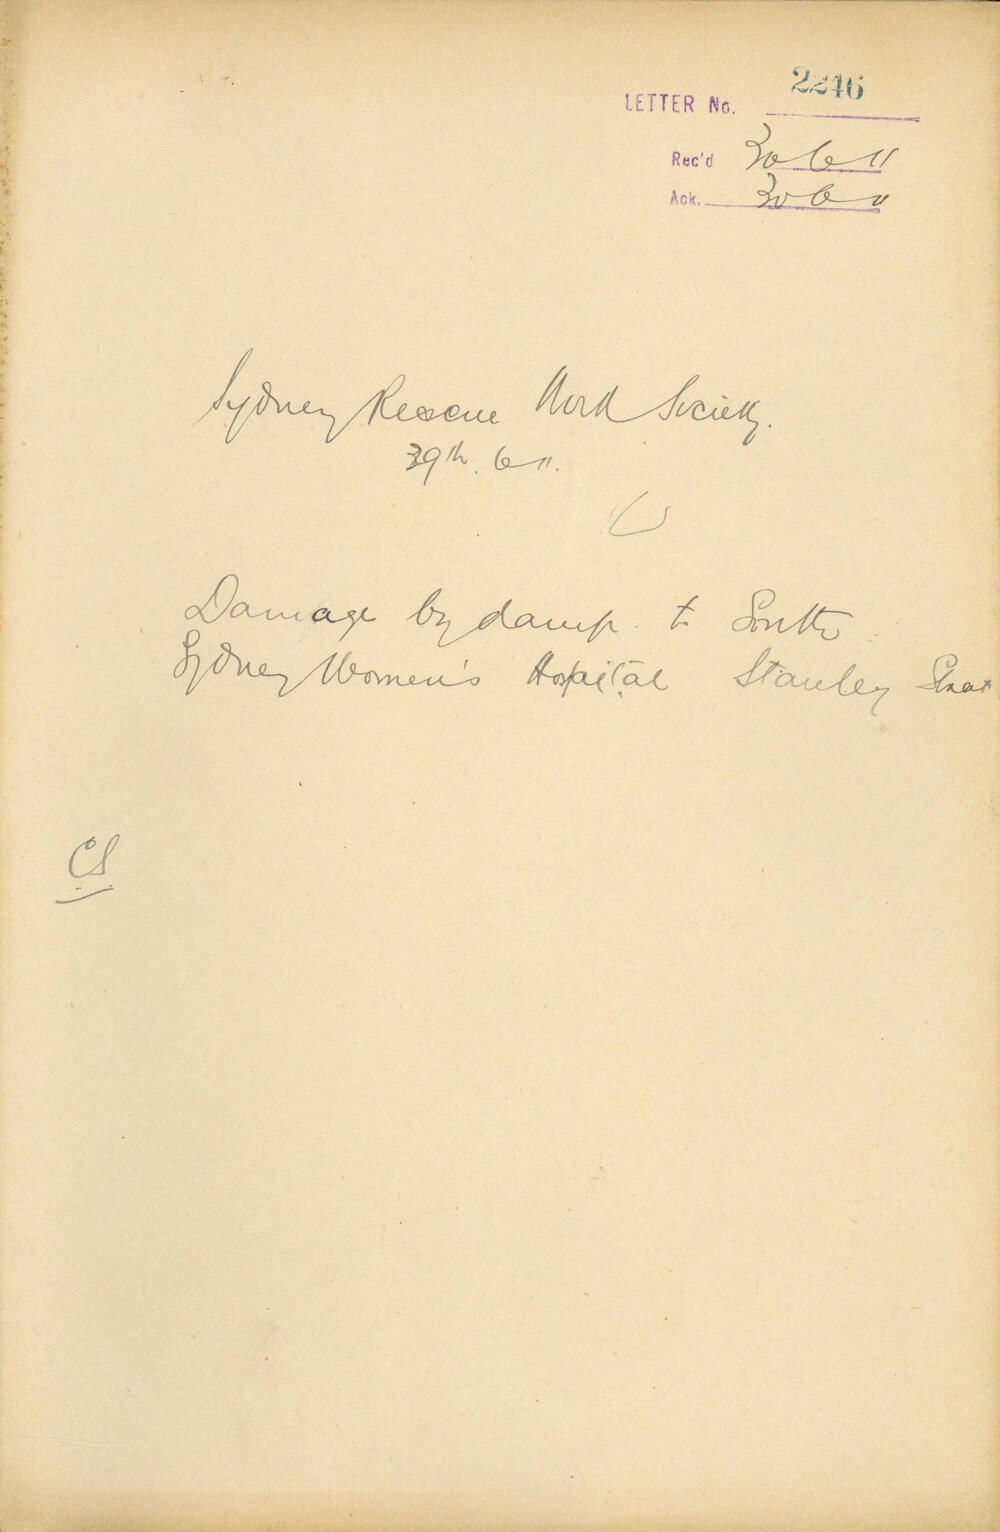 LETTER No. 2246
Rec'd 30 6 11
Ack. 30 6 11
Sydney Rescue Work Society.
29th. 6 11.
Damage by damp. to South
Sydney Women's Hospital Stanley Street
CS